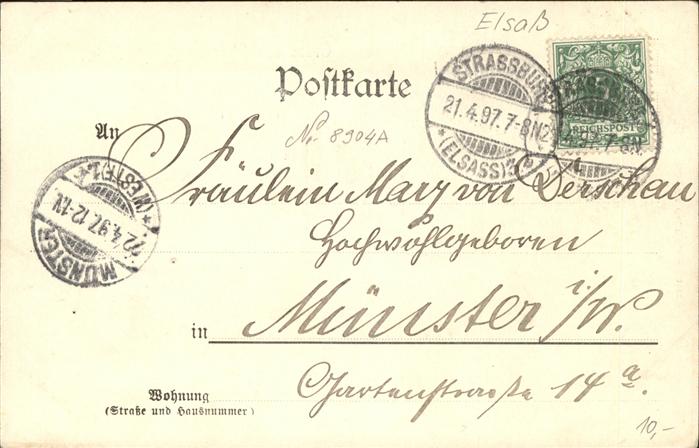 Elsaß
Postkarte
STRASSBURG
21.4.97.7-8N
*(ELSASS)*
STRASSBURG
97.7-8N.
REICHSPOST
An
No 8904A
Fräulein Mary von Derschau
Hochwohlgeboren
in Münster i/W.
MÜNSTER
22.4.97.12-1N
*(WESTF.)*
Wohnung
(Straße und Hausnummer)
Gartenstraße 14 a.
10,-